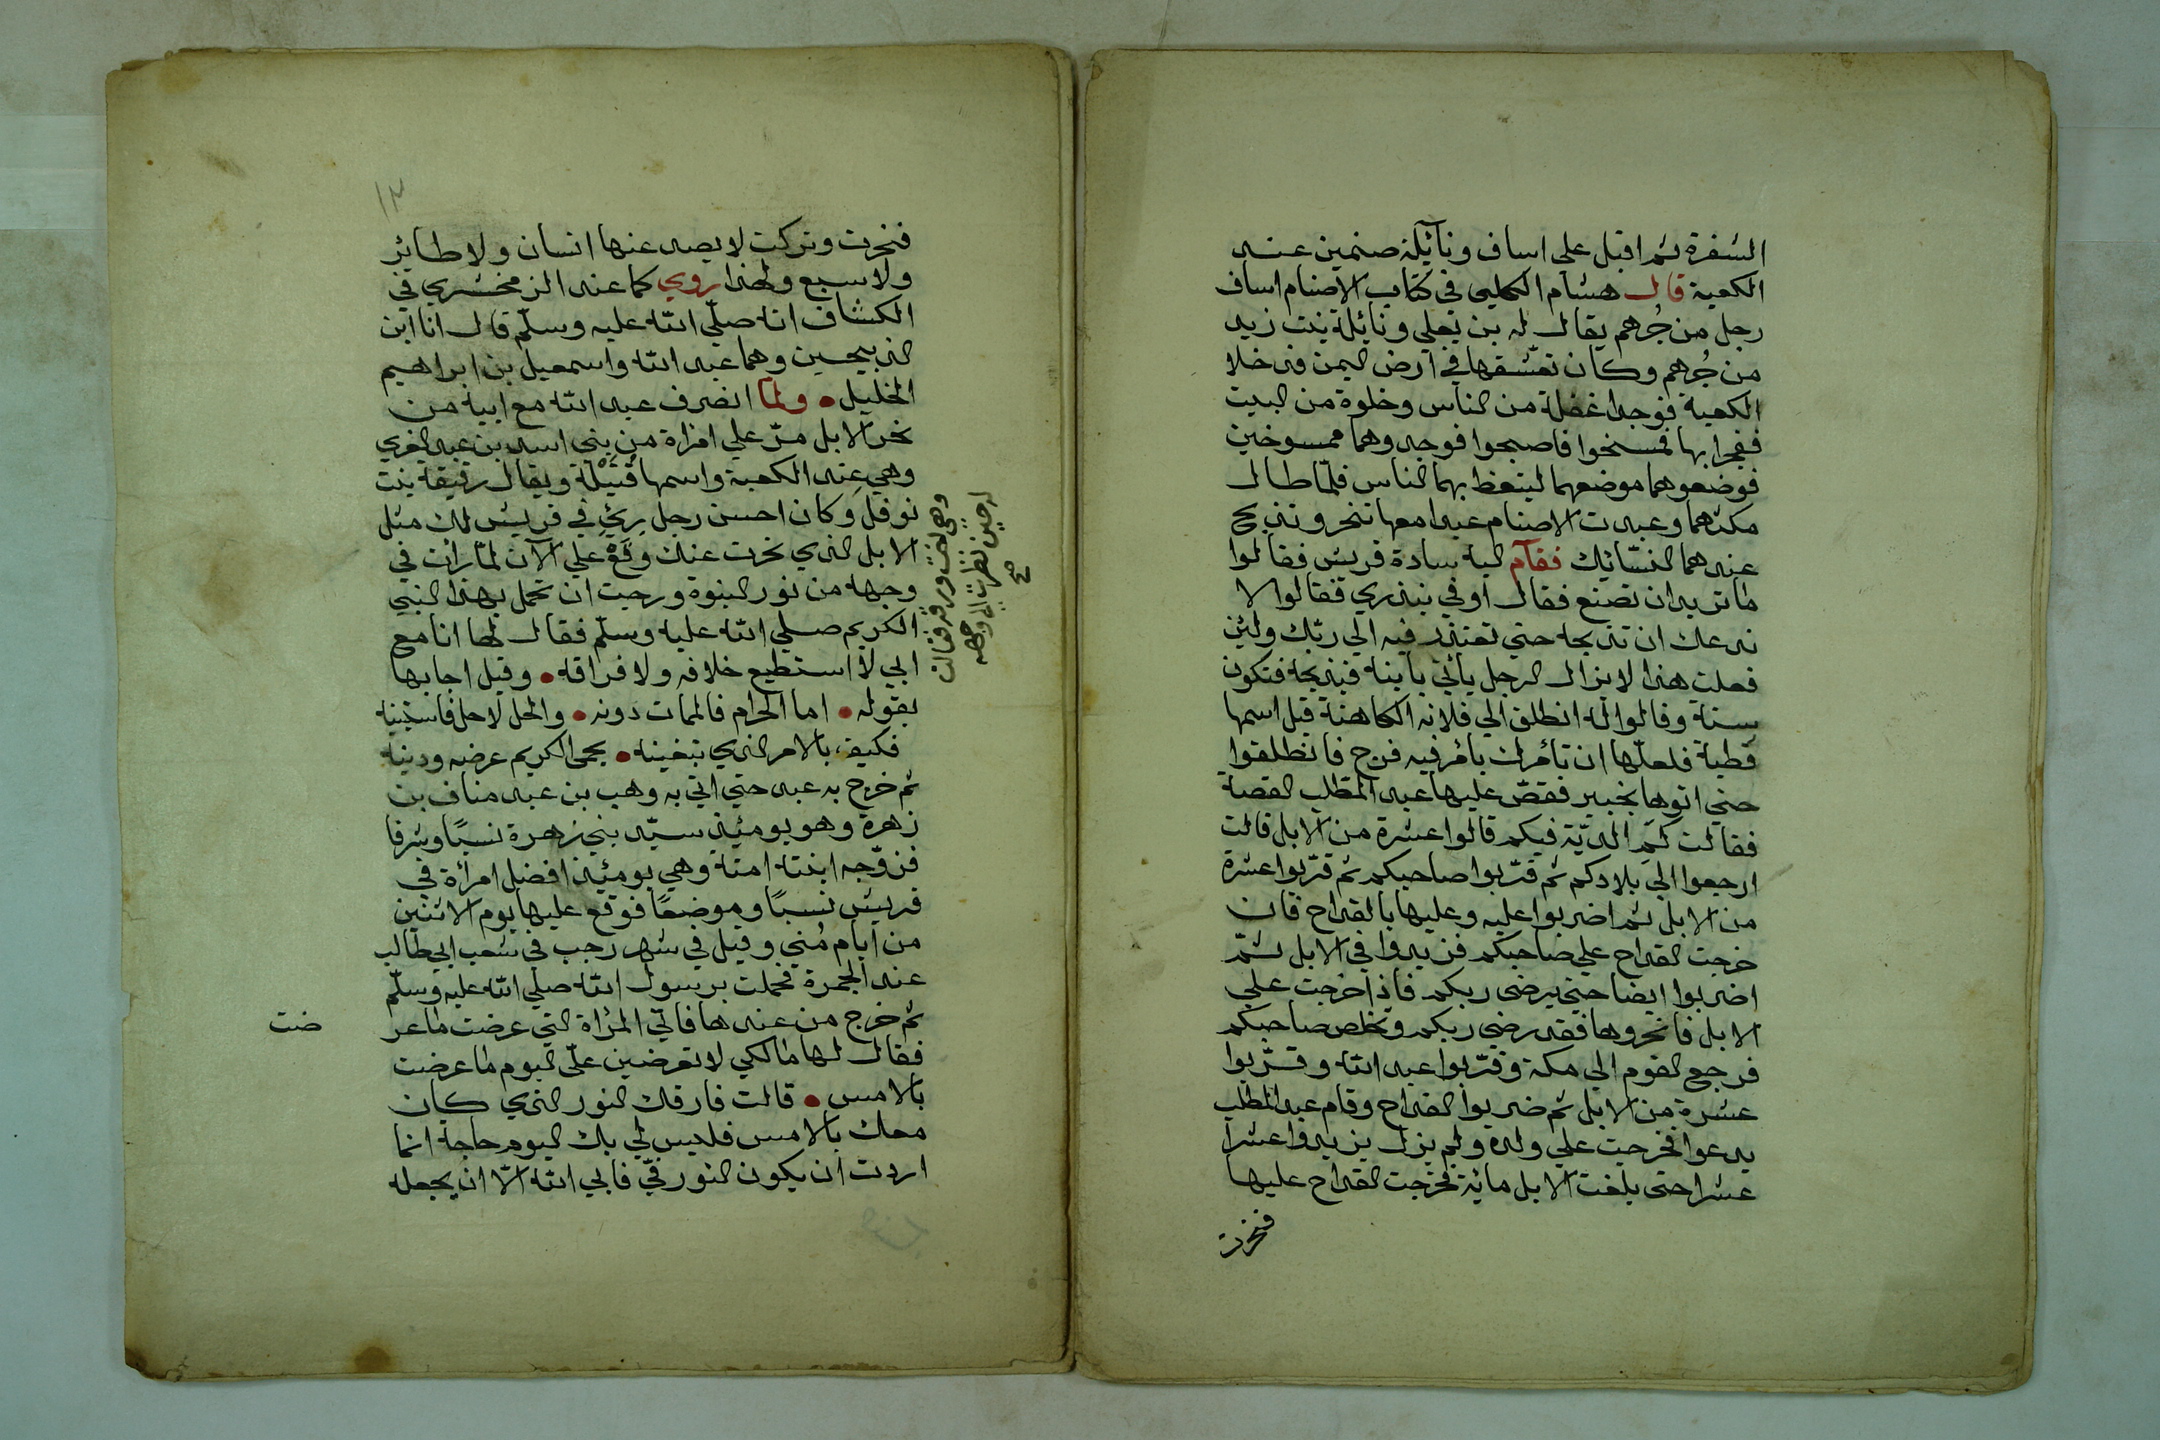 السفرة ثم اقبل على اساف ونآئلة صنمين عند
الكعبة قال هشام الكلبي في كتاب الاصنام اساف
رجل من جُرهم يقال له بن يعلي ونائلة بنت زيد
من جُرهم وكان تعشقها في ارض اليمن فدخلا
الكعبة فوجدا غفلة من الناس وخلوة من البيت
ففجرا بها فمسخوا فاصبحوا فوجدوهما ممسوخين
فوضعوهما موضعهما ليتعظ بهما الناس فلمّا طال
مكثهما وعبدت الاصنام عبدا معها تنحر وتذبح
عندهما النسّائك فقآم اليه سادة قريش فقالوا
ما تريد ان تصنع فقال اوفي بنذري فقالوا لا
ندعك ان تذبحه حتي تعتذر فيه الي ربّك ولئن
فعلت هذا لا يزال الرجل يأتي بابنه فيذبحه فتكون
سنة وقالوا له انطلق الي فلانه الكاهنة قيل اسمها
قطبة فلعلّها ان تأمرك بامر فيه فرج فانطلقوا
حتي اتوها بخيبر فقصّ عليها عبد المطّلب القصة
فقالت كم الديّة فيكم قالوا عشرة من الابل قالت
ارجعوا الي بلادكم ثم قرّبوا صاحبكم ثم قرّبوا عشرة
من الابل ثم اضربوا عليه وعليها بالقداح فان
خرجت القداح علي صاحبكم فزيدوا في الابل ثمّ
اضربوا ايضا حتي يرضى ربكم فاذا خرجت علي
الابل فانحروها فقد رضي ربكم وتخلص صاحبكم
فرجع القوم الي مكة وقرّبوا عبد الله وقرّبوا
عشرة من الابل ثم ضربوا القداح وقام عبد المطلب
يدعوا فخرجت علي ولده ولم يزل يزيدوا عشراً
عشرا حتى بلغت الابل مائة فخرجت القداح عليها
فنحرت
١٣
فنحرت وتركت لا يصد عنها انسان ولا طائر
ولا سبع ولهذا روي كما عند الزمخشري في
الكشاف انه صلّي الله عليه وسلّم قال انا ابن
الذبيحين وهما عبد الله واسمعيل بن ابراهيم
الخليل • ولمّا انصرف عبد الله مع ابيه من
نحر الابل مرّ علي امراة من بني اسد بن عبد العزي
وهي عند الكعبة واسمها قُتَيْلَة ويقال رقيقة بنت
نوفل وكان احسن رجل رِيَ في قريش لك مثل
الابل الذي نحرت عنك وَقَعْ علي الآن لمّا رأت في
وجهه من نور النبوة ورجت ان تحمل بهذا النبي
الكريم صلي الله عليه وسلّم فقال لها انا مع
ابي لا استطيع خلافه ولا فراقه • وقيل اجابها
بقوله • اما الحرام فالممات دونه • والحل لا حل فاستبينه
فكيف بالامر الذي تبغينه • يحمى الكريم عرضه ودينه
ثم خرج به عبد حتي اتي به وهب بن عبد مناف بن
زهرة وهو يومئذ سيّد بني زُهرة نسبًا وشرفا
فزوّجه ابنته امنة وهي يومئذ افضل امرأة في
قريش نسبًا وموضعًا فوقع عليها يوم الاثنين
من ايام مُني وقيل في شهر رجب في شعب ابي طالب
عند الجمرة فحملت برسول الله صلّي الله عليه وسلّم
ثم خرج من عندها فاتي المرأة التي عرضت ما عر
ضت
فقال لها مالكي لا تعرضين علي اليوم ما عرضت
بالامس • قالت فارقك النور الذي كان
معك بالامس فليس لي بك اليوم حاجة انما
اردت ان يكون النور فيّ فابي الله الّا ان يجعله
وهي اخت ورقة فقالت
له حين نظرت الي وجهه
صح